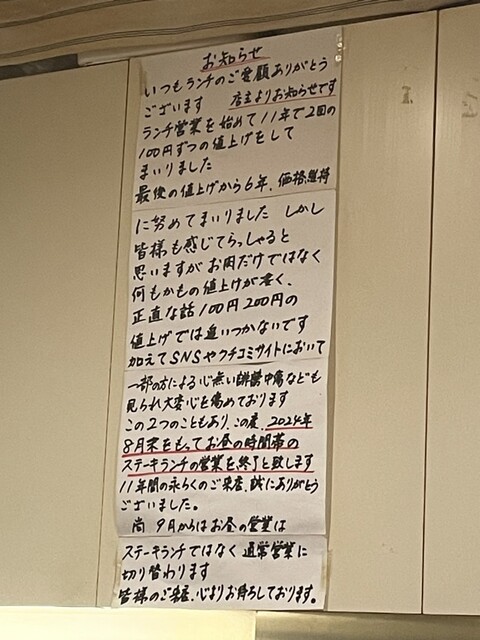 お知らせ
いつもランチのご愛顧ありがとう
ございます 店主よりお知らせです
ランチ営業を始めて11年で2回の
100円ずつの値上げをして
まいりました
最後の値上げから6年、価格維持
に努めてまいりました しかし
皆様も感じてらっしゃると
思いますがお肉だけではなく
何もかもの値上げが著く、
正直な話100円200円の
値上げでは追いつかないです
加えてSNSやクチコミサイトにおいて
一部の方による心無い誹謗中傷なども
見られ大変心を傷めております
この2つのこともあり、この度、2024年
8月末をもってお昼の時間帯の
ステーキランチの営業を終了と致します
11年間の永らくのご来店、誠にありがとう
ございました。
尚 9月からはお昼の営業は
ステーキランチではなく通常営業に
切り替わります
皆様のご来店、心よりお待ちしております。